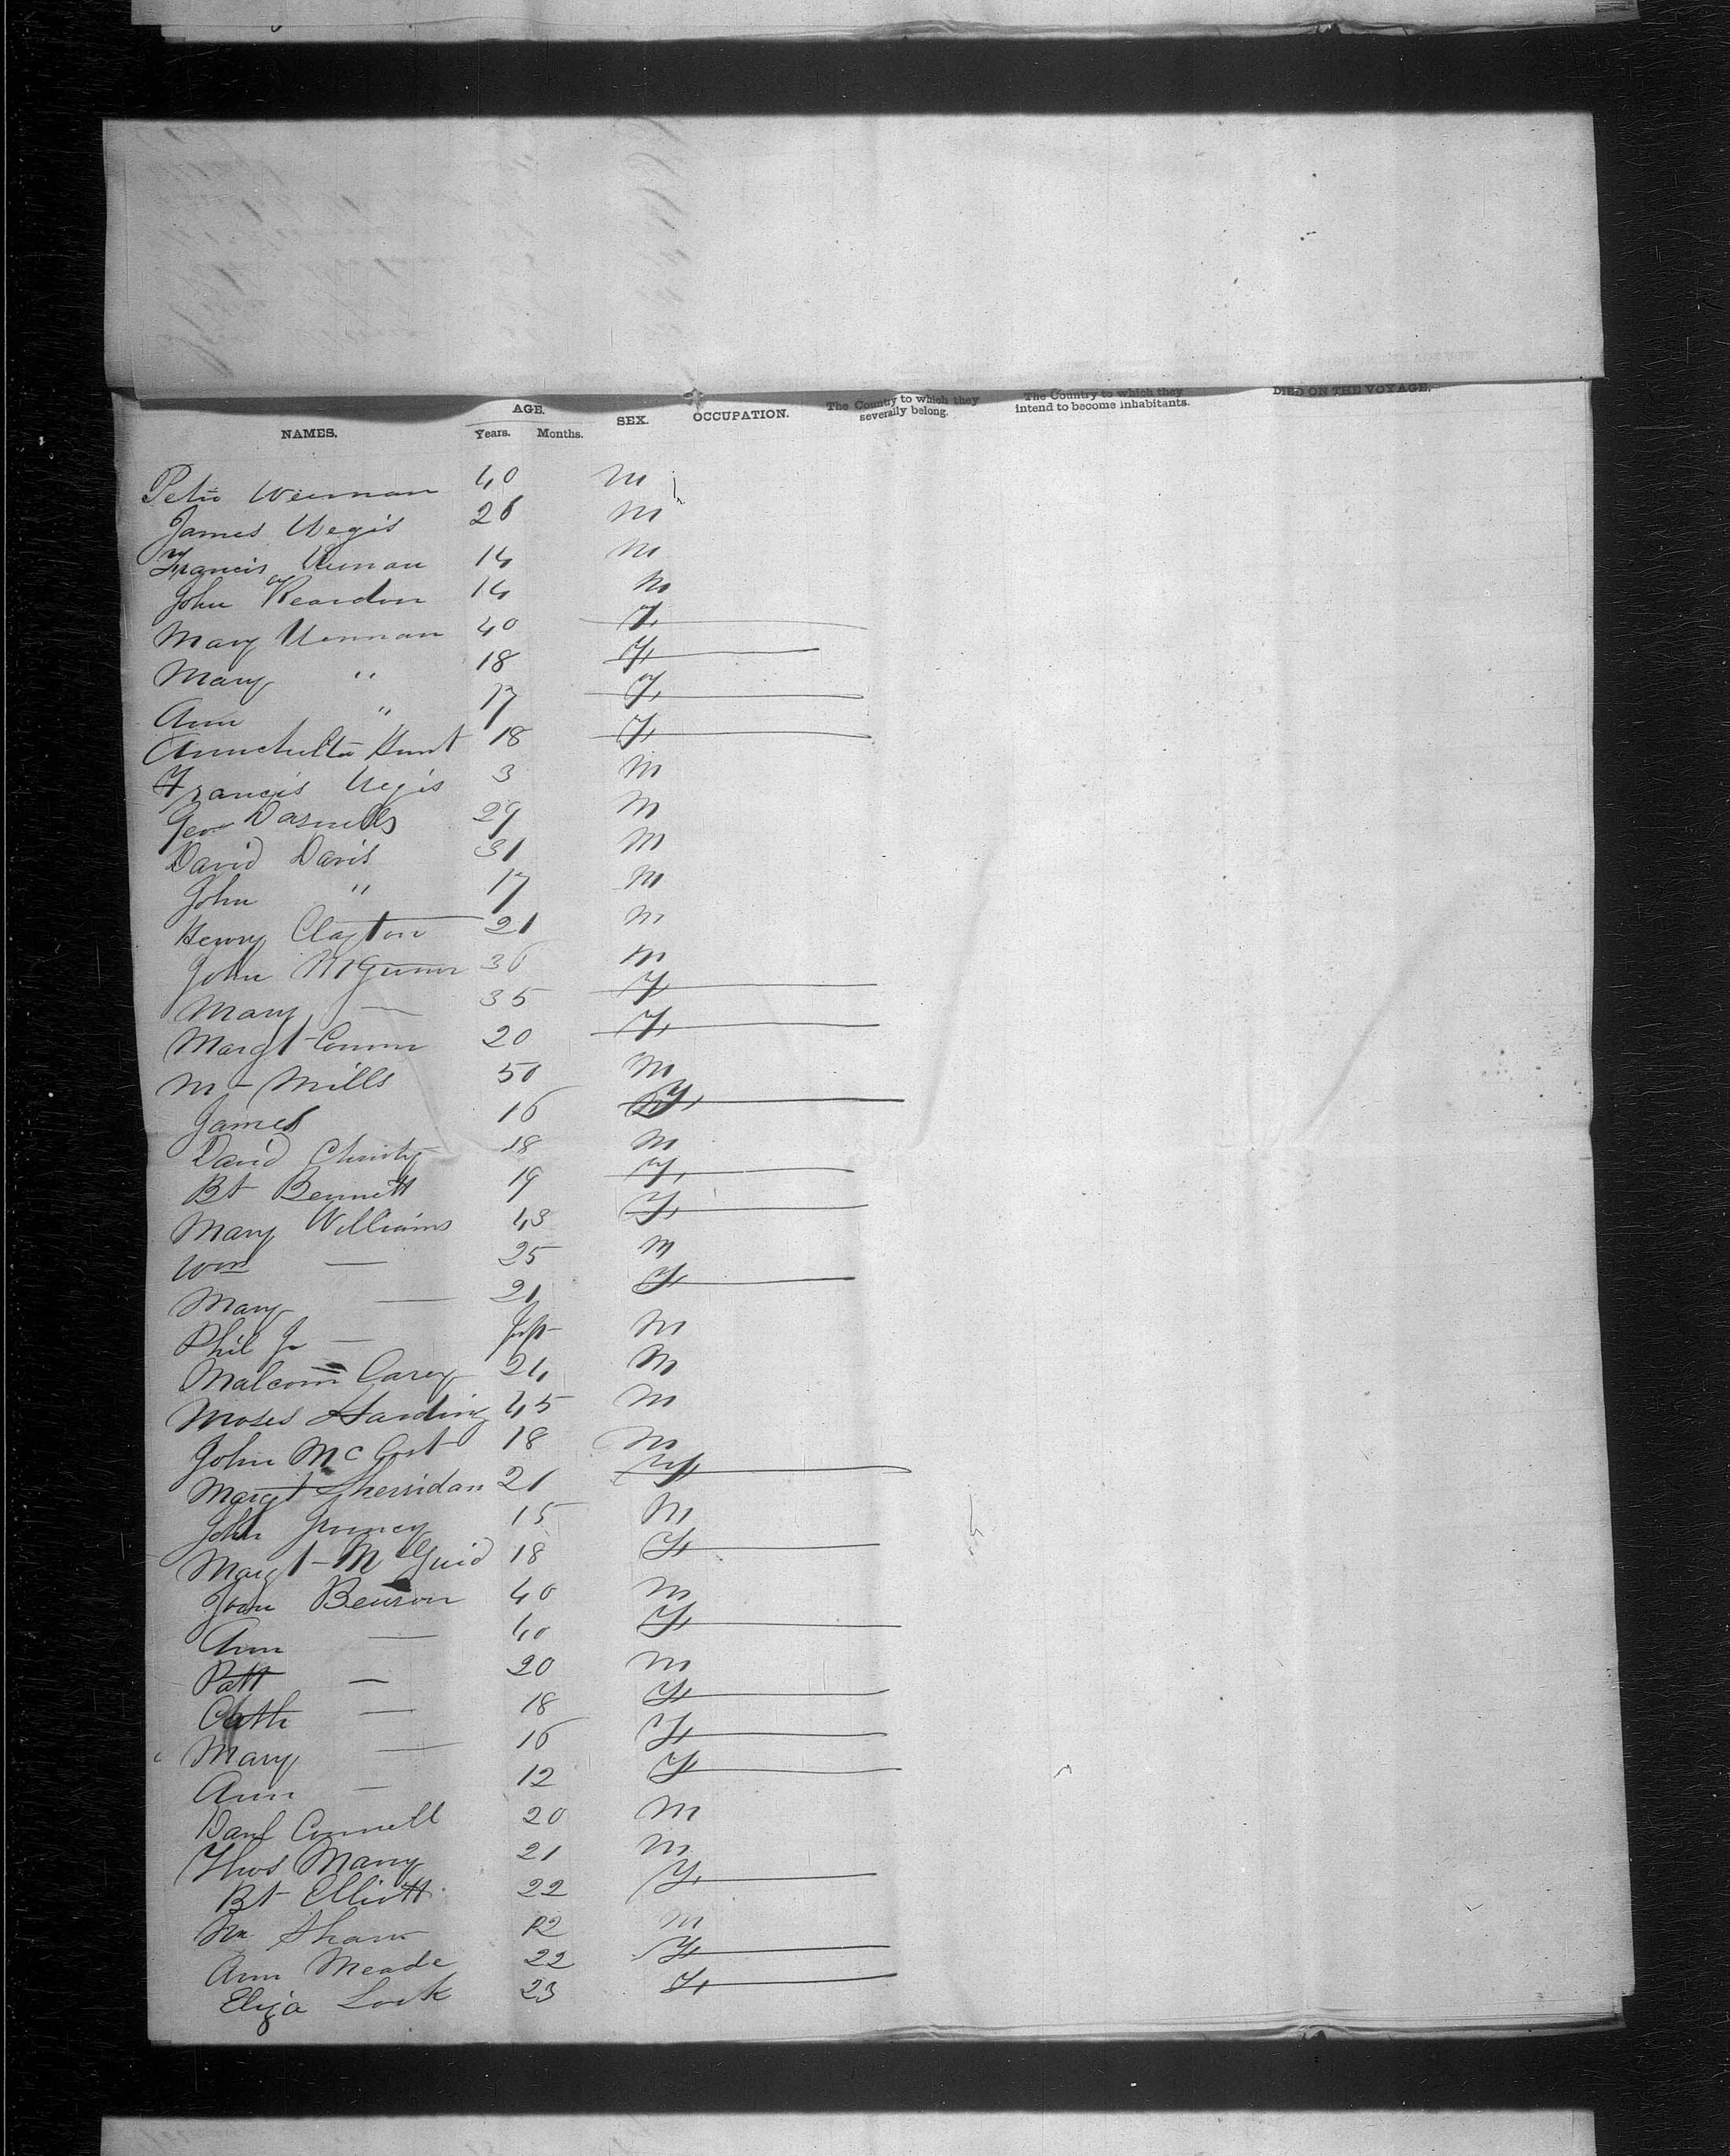 NAMES. AGE. Years. Months. SEX. OCCUPATION. The Country to which they severally belong. The Country to which they intend to become inhabitants. DIED ON THE VOYAGE.
40 m
James 26 m
Francis 14 m
John Reardon 14 m
Mary 40 F
Mary " 18 F
Ann " 17 F
Hunt 18 F
Francis 3 m
Geo 29 m
David Davis 31 m
John " 17 m
Henry Clayton 21 m
John 36 m
Mary — 35 F
Margt 20 F
M Mills 50 m
James 16 F
David Christy 18 m
Bt Bennett 19 F
Mary Williams 43 F
Wm — 25 m
Mary — 21 F
Phil Jr — m
Malcom Carey 24 m
Moses Harding 45 m
John 18 m
Margt Sherridan 21 F
John 15 m
Margt 18 F
John Benson 40 m
Ann — 40 F
Patt — 20 m
Cath — 18 F
Mary — 16 F
Ann — 12 F
Danl Connell 20 m
Thos 21 m
Bt Elliott 22 F
Shaw 22 m
Ann Meade 22 F
Eliza Lock 23 F